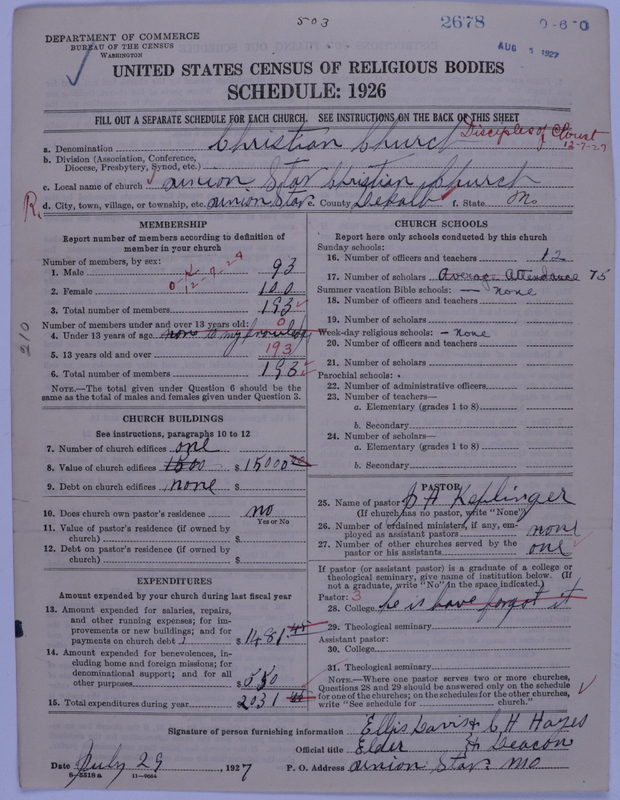 503
2678
0-6-0
DEPARTMENT OF COMMERCE
BUREAU OF THE CENSUS
WASHINGTON
AUG 1 1927
UNITED STATES CENSUS OF RELIGIOUS BODIES
SCHEDULE: 1926
FILL OUT A SEPARATE SCHEDULE FOR EACH CHURCH. SEE INSTRUCTIONS ON THE BACK OF THIS SHEET
a. Denomination Christian Church Disciples of Christ
12-7-27
b. Division (Association, Conference, Diocese, Presbytery, Synod, etc.)
c. Local name of church Union Star Christian Church
R.
d. City, town, village, or township, etc. Union Star County Dekalb f. State Mo
210
MEMBERSHIP
Report number of members according to definition of
member in your church
Number of members, by sex:
1. Male 93
2. Female 100
3. Total number of members 193
Number of members under and over 13 years old: 0
4. Under 13 years of age none to my knowledge
5. 13 years old and over 193
6. Total number of members 193
NOTE.—The total given under Question 6 should be the
same as the total of males and females given under Question 3.
CHURCH BUILDINGS
See instructions, paragraphs 10 to 12
7. Number of church edifices one
8. Value of church edifices 1500 $ 15000
9. Debt on church edifices none $
10. Does church own pastor's residence no
Yes or No
11. Value of pastor's residence (if owned by
church) $
12. Debt on pastor's residence (if owned by
church) $
EXPENDITURES
Amount expended by your church during last fiscal year
13. Amount expended for salaries, repairs,
and other running expenses; for im-
provements or new buildings; and for
payments on church debt $ 1481
14. Amount expended for benevolences, in-
cluding home and foreign missions; for
denominational support; and for all
other purposes $ 550
15. Total expenditures during year $ 2031
CHURCH SCHOOLS
Report here only schools conducted by this church
Sunday schools:
16. Number of officers and teachers 12
17. Number of scholars Average Attendance 75
Summer vacation Bible schools: — none
18. Number of officers and teachers
19. Number of scholars
Week-day religious schools: - none
20. Number of officers and teachers
21. Number of scholars
Parochial schools:
22. Number of administrative officers
23. Number of teachers—
a. Elementary (grades 1 to 8)
b. Secondary
24. Number of scholars—
a. Elementary (grades 1 to 8)
b. Secondary
PASTOR
25. Name of pastor C H Keplinger
(If church has no pastor, write "None")
26. Number of ordained ministers, if any, em-
ployed as assistant pastors none
27. Number of other churches served by the
pastor or his assistants one
If pastor (or assistant pastor) is a graduate of a college or
theological seminary, give name of institution below. (If
not a graduate, write "No" in the space indicated.)
Pastor: 3
28. College he is have forgot it
29. Theological seminary
Assistant pastor:
30. College
31. Theological seminary
NOTE.—Where one pastor serves two or more churches,
Questions 28 and 29 should be answered only on the schedule
for one of the churches; on the schedules for the other churches,
write "See schedule for church."
Signature of person furnishing information Ellis Davis & C H Hayes
Official title Elder & Deacon
Date July 29, 1927 P. O. Address Union Star Mo
8-5518a 11-9054